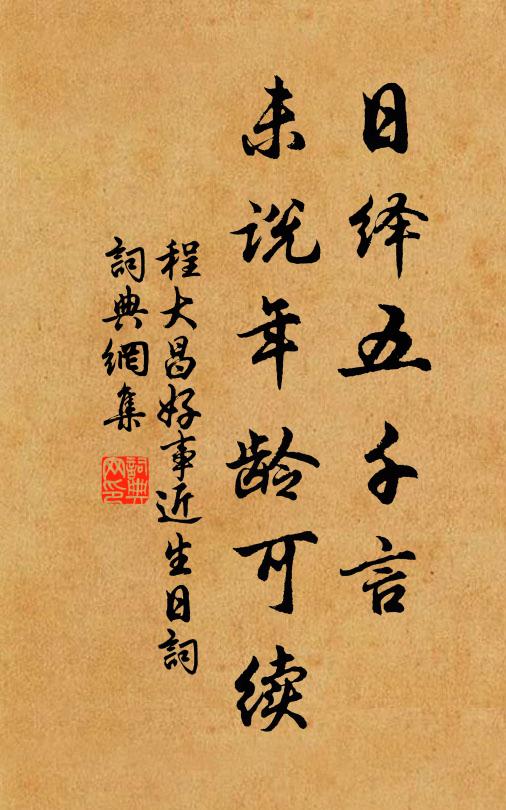 日绎五千言
未说年龄可续
程大昌好事近生日詞
詞典網集
詞典网印